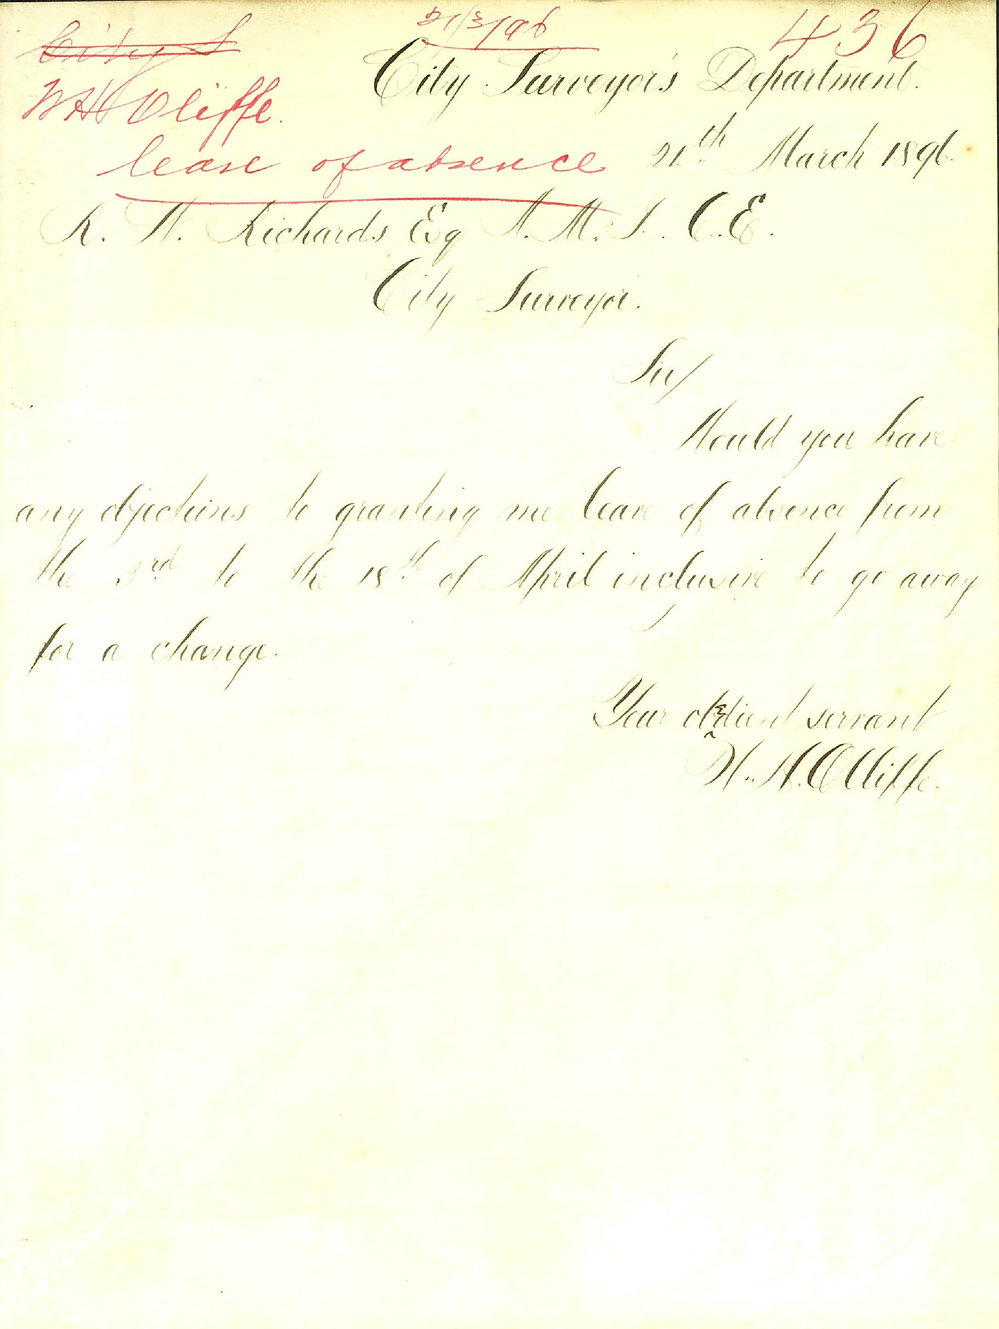 21/3/96
436
City S
W H Olliffe.
leave of absence
City Surveyor's Department.
21th March 1896.
R. W. Richards Esq A. M. I. C. E.
City Surveyor.
Sir/
Would you have
any objections to granting me leave of absence from
the 3rd to the 18th of April inclusive to go away
for a change.
Your obedient servant
W. H. Olliffe.